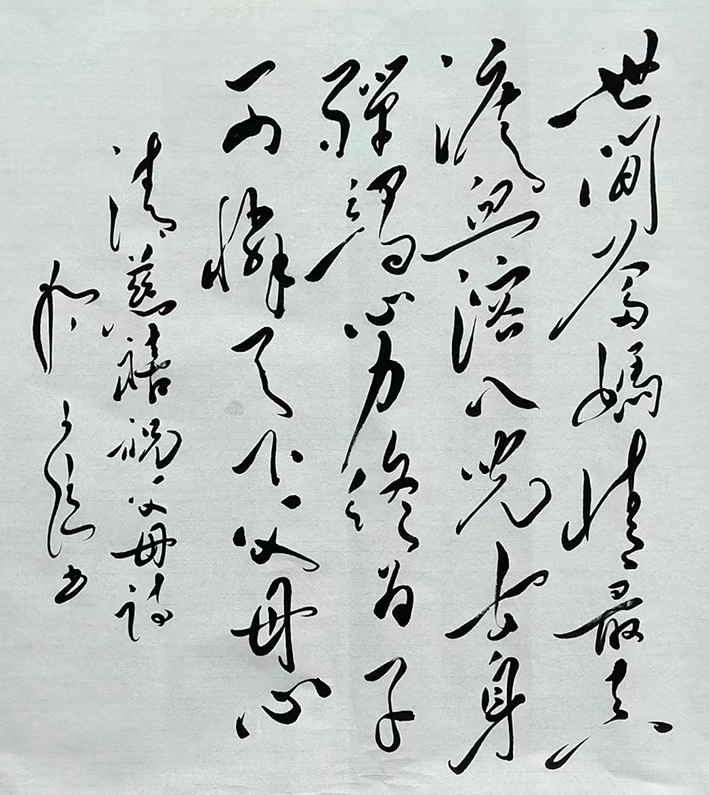 世间爹妈情最真
泪血溶入儿女身
殚竭心力终为子
可怜天下父母心
清慈禧祝父母诗
书